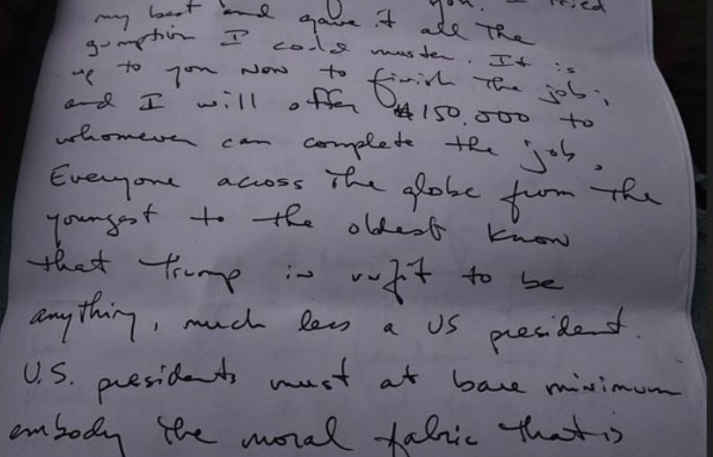 you. I tried
my best and gave it all the
gumption I could muster. It is
up to you now to finish the job;
and I will offer $150,000 to
whomever can complete the job.
Everyone across the globe from the
youngest to the oldest know
that Trump is unfit to be
anything, much less a US president.
U.S. presidents must at bare minimum
embody the moral fabric that is